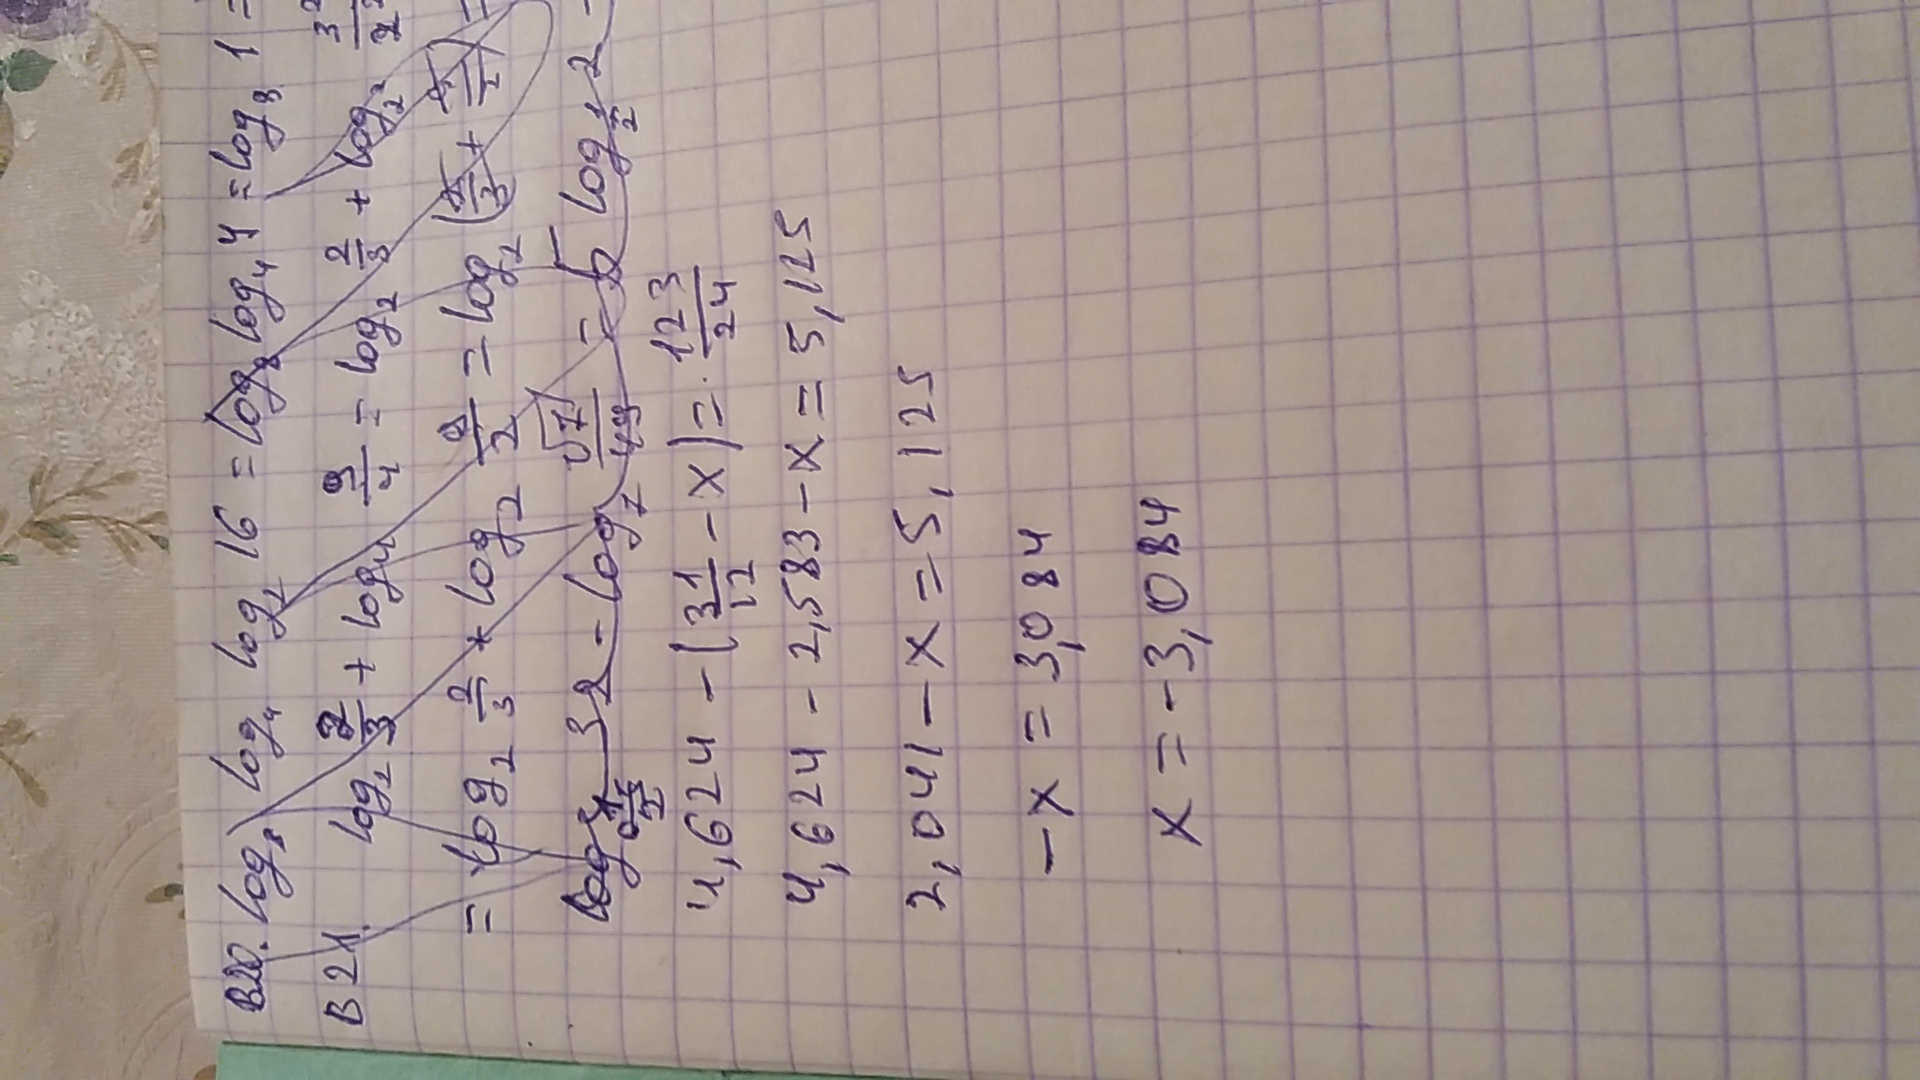 В20. log₃ log₄ log₂ 16 = log₃ log₄ 4 = log₃ 1 =
В21. log₂ 2/3 + log₄ 9/4 = log₂ 2/3 + log₂
= log₂ 2/3 + log₂ = log₂
32 - log₇ √7/49 = log
4,624 - (31/12 - x) = 123/24
4,624 - 2,583 - x = 5,125
2,041 - x = 5,125
-x = 3,084
x = -3,084